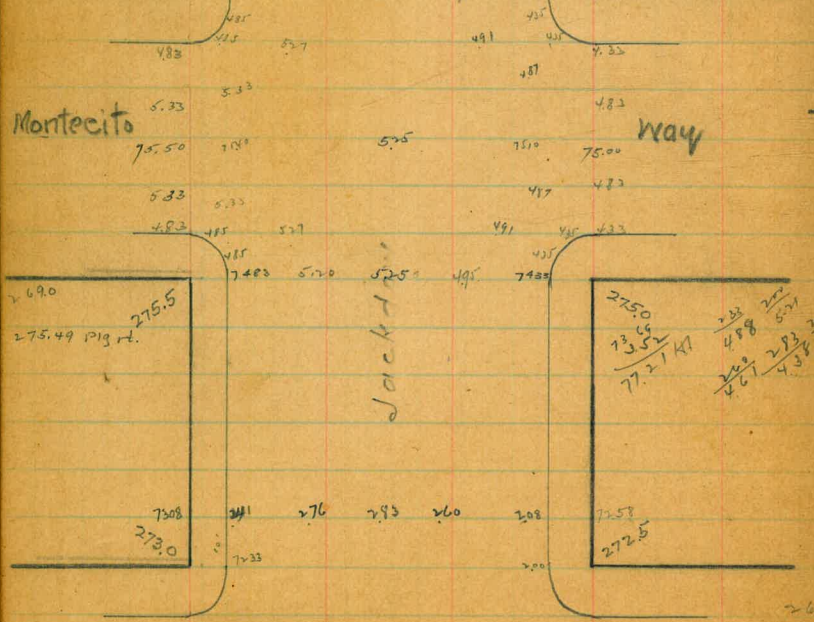 485 435
4.83 485 527 491 435 4.33
487
5.33 5.33 4.83
Montecito Way
75.50 7550 525 7510 75.00
5.33 5.33 487 4.83
4.83 485 527 491 435 4.33
485 435
7483 5.20 525 495 7433
269.0 275.5 275.0
275.49 Plgrt.
73.69
3.52
77.21
233
488
200
5.21
260
461
283
438
Jackdaw
7308 241 276 283 260 208 7258
273.0 272.5
7233 200
26